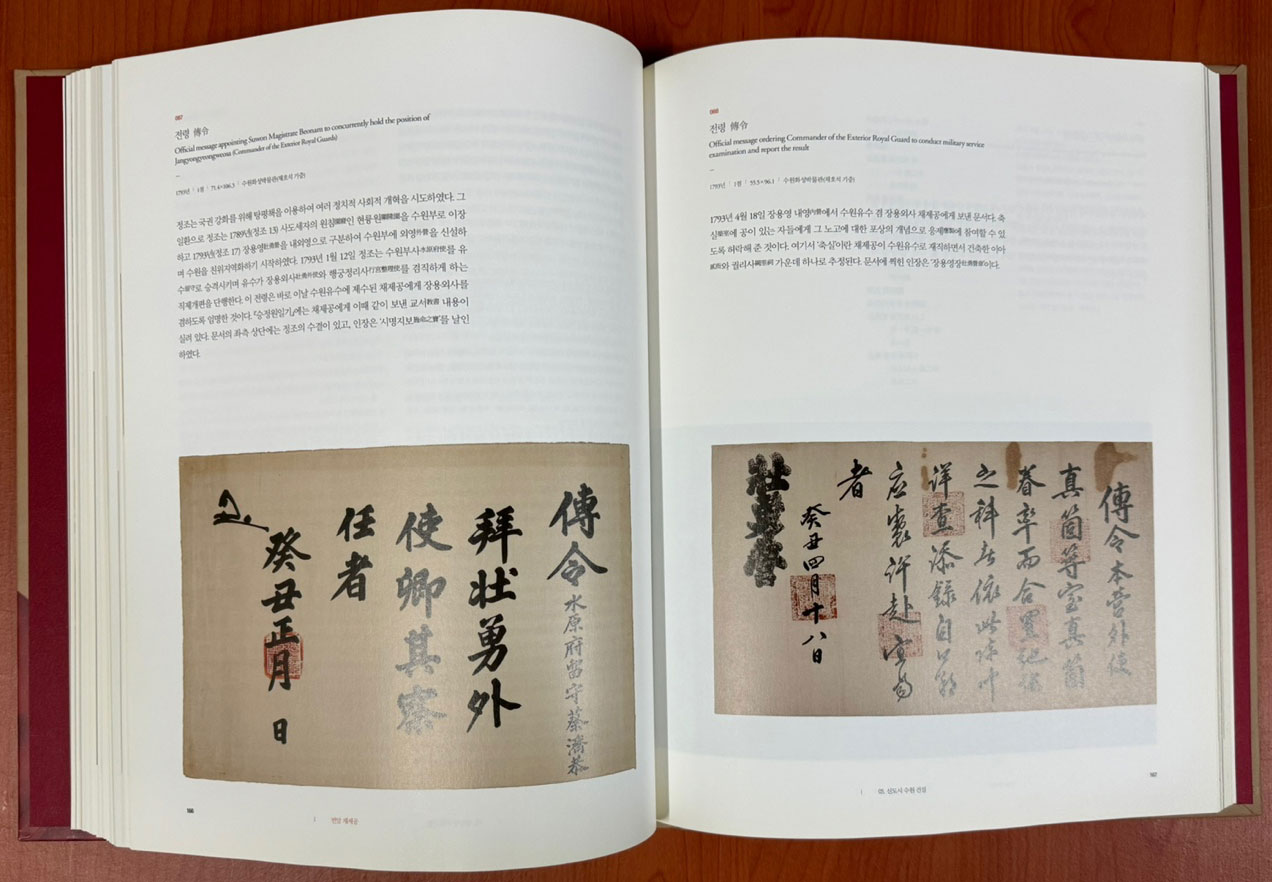 087
전령 傳令
Official message appointing Suwon Magistrate Beonam to concurrently hold the position of
Jangyongyeongweosa (Commander of the Exterior Royal Guards)
1793년 | 1점 | 71.4×106.3 | 수원화성박물관(채호석 기증)
정조는 국권 강화를 위해 탕평책을 이용하여 여러 정치적 사회적 개혁을 시도하였다. 그
일환으로 정조는 1789년(정조 13) 사도세자의 원침園寢인 현륭원顯隆園을 수원부로 이장
하고 1793년(정조 17) 장용영壯勇營을 내외영으로 구분하여 수원부에 외영外營을 신설하
며 수원을 친위지역화하기 시작하였다. 1793년 1월 12일 정조는 수원부사水原府使를 유
수留守로 승격시키며 유수가 장용외사壯勇外使와 행궁정리사行宮整理使를 겸직하게 하는
직제개편을 단행한다. 이 전령은 바로 이날 수원유수에 제수된 채제공에게 장용외사를
겸하도록 임명한 것이다. 『승정원일기』에는 채제공에게 이때 같이 보낸 교서敎書 내용이
실려 있다. 문서의 좌측 상단에는 정조의 수결이 있고, 인장은 '시명지보施命之寶'를 날인
하였다.
傳令 水原府留守蔡濟恭
拜壯勇外
使卿其察
任者
癸丑正月 日
166
번암 채제공
088
전령 傳令
Official message ordering Commander of the Exterior Royal Guard to conduct military service
examination and report the result
1793년 | 1점 | 55.5×96.1 | 수원화성박물관(채호석 기증)
1793년 4월 18일 장용영 내영內營에서 수원유수 겸 장용외사 채제공에게 보낸 문서다. 축
실築室에 공이 있는 자들에게 그 노고에 대한 포상의 개념으로 응제應製에 참여할 수 있
도록 허락해 준 것이다. 여기서 '축실'이란 채제공이 수원유수로 재직하면서 건축한 이아
貳衙와 궐리사闕里祠 가운데 하나로 추정된다. 문서에 찍힌 인장은 '장용영장壯勇營章'이다.
傳令本營外使
真箇等室真箇
眷率而合
之科者依此
詳查添錄自
应製許赴宜
者
癸丑四月十八日
壯勇營
167
05. 신도시 수원 건설